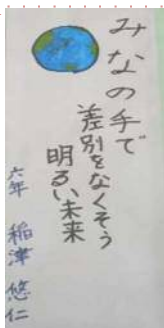 みなの手で
差別をなくそう
明るい未来
六年 稲津 悠仁